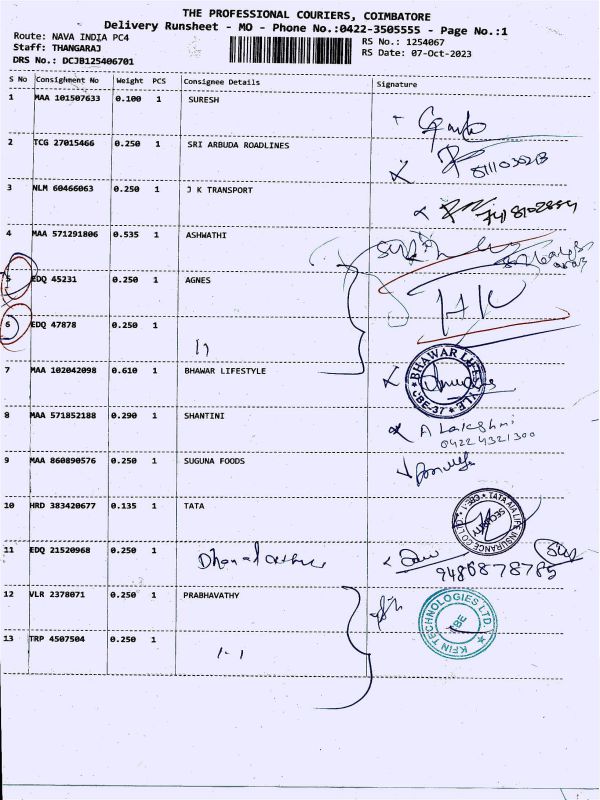 THE PROFESSIONAL COURIERS, COIMBATORE
Delivery Runsheet - MO - Phone No.:0422-3505555 - Page No.:1
Route: NAVA INDIA PC4
RS No.: 1254067
Staff: THANGARAJ
RS Date: 07-Oct-2023
DRS No.: DCJB125406701
S No Consighment No Weight PCS Consignee Details Signature
1 MAA 101507633 0.100 1 SURESH
2 TCG 27015466 0.250 1 SRI ARBUDA ROADLINES
3 NLM 60466063 0.250 1 J K TRANSPORT
4 MAA 571291806 0.535 1 ASHWATHI
5 EDQ 45231 0.250 1 AGNES
6 EDQ 47878 0.250 1
7 MAA 102042098 0.610 1 BHAWAR LIFESTYLE
BHAWAR LIFESTYLE
CBE-37
8 MAA 571852188 0.290 1 SHANTINI
A Lakshmi
0422 4321300
9 MAA 860890576 0.250 1 SUGUNA FOODS
10 HRD 383420677 0.135 1 TATA
TATA AIA LIFE INSURANCE CO LTD
CBE-1
SECURITY
11 EDQ 21520968 0.250 1
9486878785
12 VLR 2378071 0.250 1 PRABHAVATHY
KFIN TECHNOLOGIES LTD
13 TRP 4507504 0.250 1